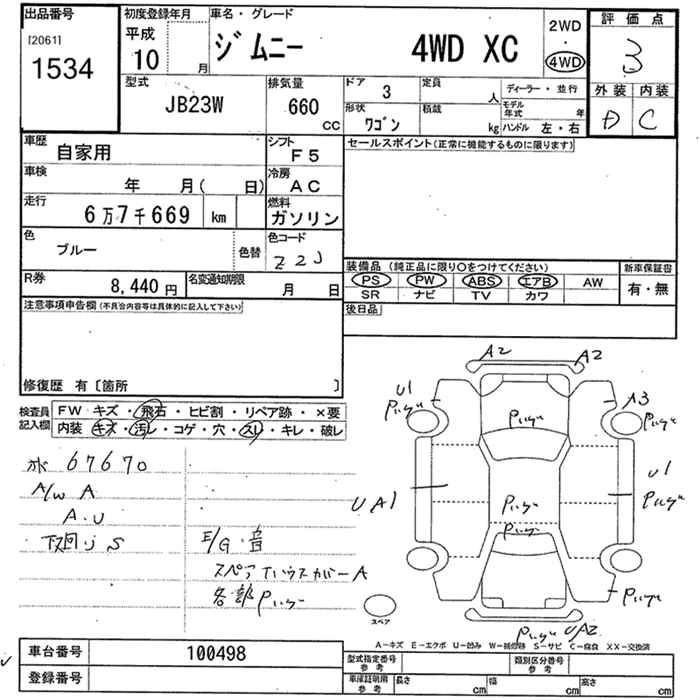 出品番号
[2061]
1534
初度登録年月
平成
10
月
車名・グレード
ジムニー 4WD XC
2WD
・
4WD
評価点
3
外装 内装
D C
型式
JB23W
排気量
660
CC
ドア
3
定員
人
ディーラー・並行
形状
ワゴン
積載
kg
モデル年式
年
ハンドル 左・右
車歴
自家用
シフト
F5
セールスポイント(正常に機能するものに限ります)
車検
年 月( 日)
冷房
AC
走行
6万7千669 km
燃料
ガソリン
色
ブルー
色替
色コード
Z2J
装備品 (純正品に限り○をつけてください)
新車保証書
PS PW ABS エアB AW
有・無
SR ナビ TV カワ
R券
8,440円
名変通知期限
月 日
後日品
注意事項申告欄(不具合内容等は具体的に記入して下さい)
修復歴 有〔箇所 〕
検査員記入欄
FW キズ・飛石・ヒビ割・リペア跡・×要
内装 キズ・汚レ・コゲ・穴・スレ・キレ・破レ
ホ 67670
A/W A
A・U
下回り S
E/G・音
スペアTハウスカバーA
各部
A2 A2
U1
A3
UA1
U1
UA2
スペア
A-キズ E-エクボ U-凹み W-補修跡 S-サビ C-腐食 XX-交換済
車台番号
100498
登録番号
型式指定番号
参考
類別区分番号
参考
車庫証明用
参考
長さ
cm
幅
cm
高さ
cm